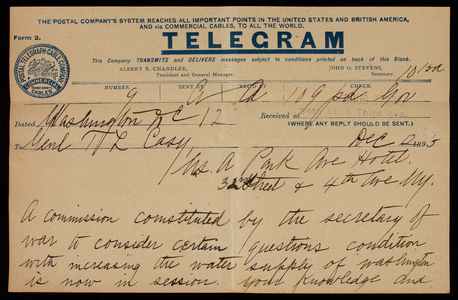 THE POSTAL COMPANY'S SYSTEM REACHES ALL IMPORTANT POINTS IN THE UNITED STATES AND BRITISH AMERICA,
and via COMMERCIAL CABLES, TO ALL THE WORLD.
Form 2.
TELEGRAM
POSTAL TELEGRAPH-CABLE COMPANY
COMMERCIAL CABLES
This Company TRANSMITS and DELIVERS messages subject to conditions printed on back of this Blank.
ALBERT B. CHANDLER,
President and General Manager.
JOHN O. STEVENS,
Secretary.
NUMBER SENT BY CHECK
9 109 pd Gov
Dated Washington DC 12
Received at
(WHERE ANY REPLY SHOULD BE SENT.)
Dec 1895
To Genl T L Casey
Park Ave Hotel
32nd Street & 4th Ave NY.
A commission constituted by the secretary of
war to consider certain questions condition
with increasing the water supply of washington
is now in session. your knowledge and